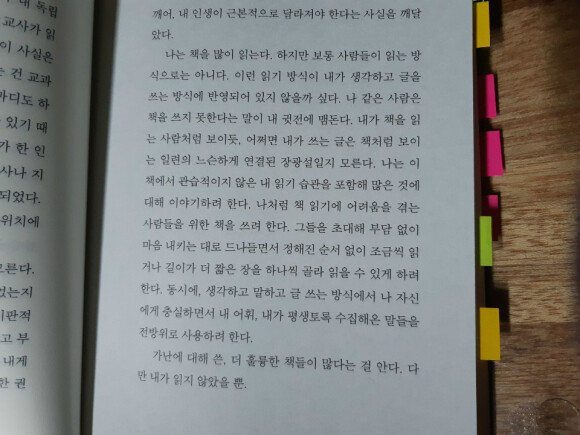 내 독립
교사가 읽
이 사실은
는 건 교과
마디도 하
있기 때
가 한 인
사나 지
되었다.
위치에
모른다.
었는지
비판적
고 부
내게
한 권
깨어, 내 인생이 근본적으로 달라져야 한다는 사실을 깨달
았다.
나는 책을 많이 읽는다. 하지만 보통 사람들이 읽는 방
식으로는 아니다. 이런 읽기 방식이 내가 생각하고 글을
쓰는 방식에 반영되어 있지 않을까 싶다. 나 같은 사람은
책을 쓰지 못한다는 말이 내 귓전에 맴돈다. 내가 책을 읽
는 사람처럼 보이듯, 어쩌면 내가 쓰는 글은 책처럼 보이
는 일련의 느슨하게 연결된 장광설일지 모른다. 나는 이
책에서 관습적이지 않은 내 읽기 습관을 포함해 많은 것에
대해 이야기하려 한다. 나처럼 책 읽기에 어려움을 겪는
사람들을 위한 책을 쓰려 한다. 그들을 초대해 부담 없이
마음 내키는 대로 드나들면서 정해진 순서 없이 조금씩 읽
거나 길이가 더 짧은 장을 하나씩 골라 읽을 수 있게 하려
한다. 동시에, 생각하고 말하고 글 쓰는 방식에서 나 자신
에게 충실하면서 내 어휘, 내가 평생토록 수집해온 말들을
전방위로 사용하려 한다.
가난에 대해 쓴, 더 훌륭한 책들이 많다는 걸 안다. 다
만 내가 읽지 않았을 뿐.